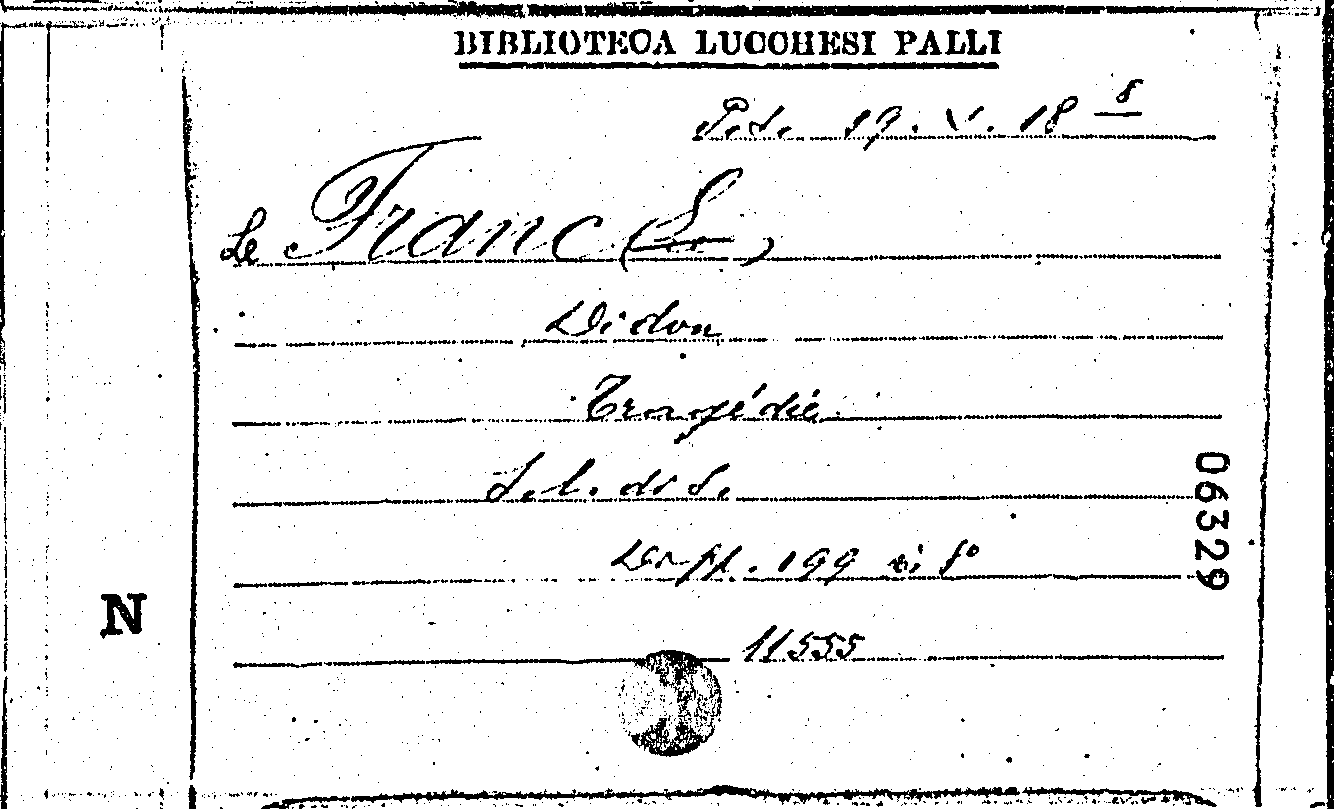 BIBLIOTECA LUCCHESI PALLI
19. V. 18 8
Le Franc (Le)
Didon
Tragédie
S. l. di S.
Da pp. 199 in 8º
11555
06329
N